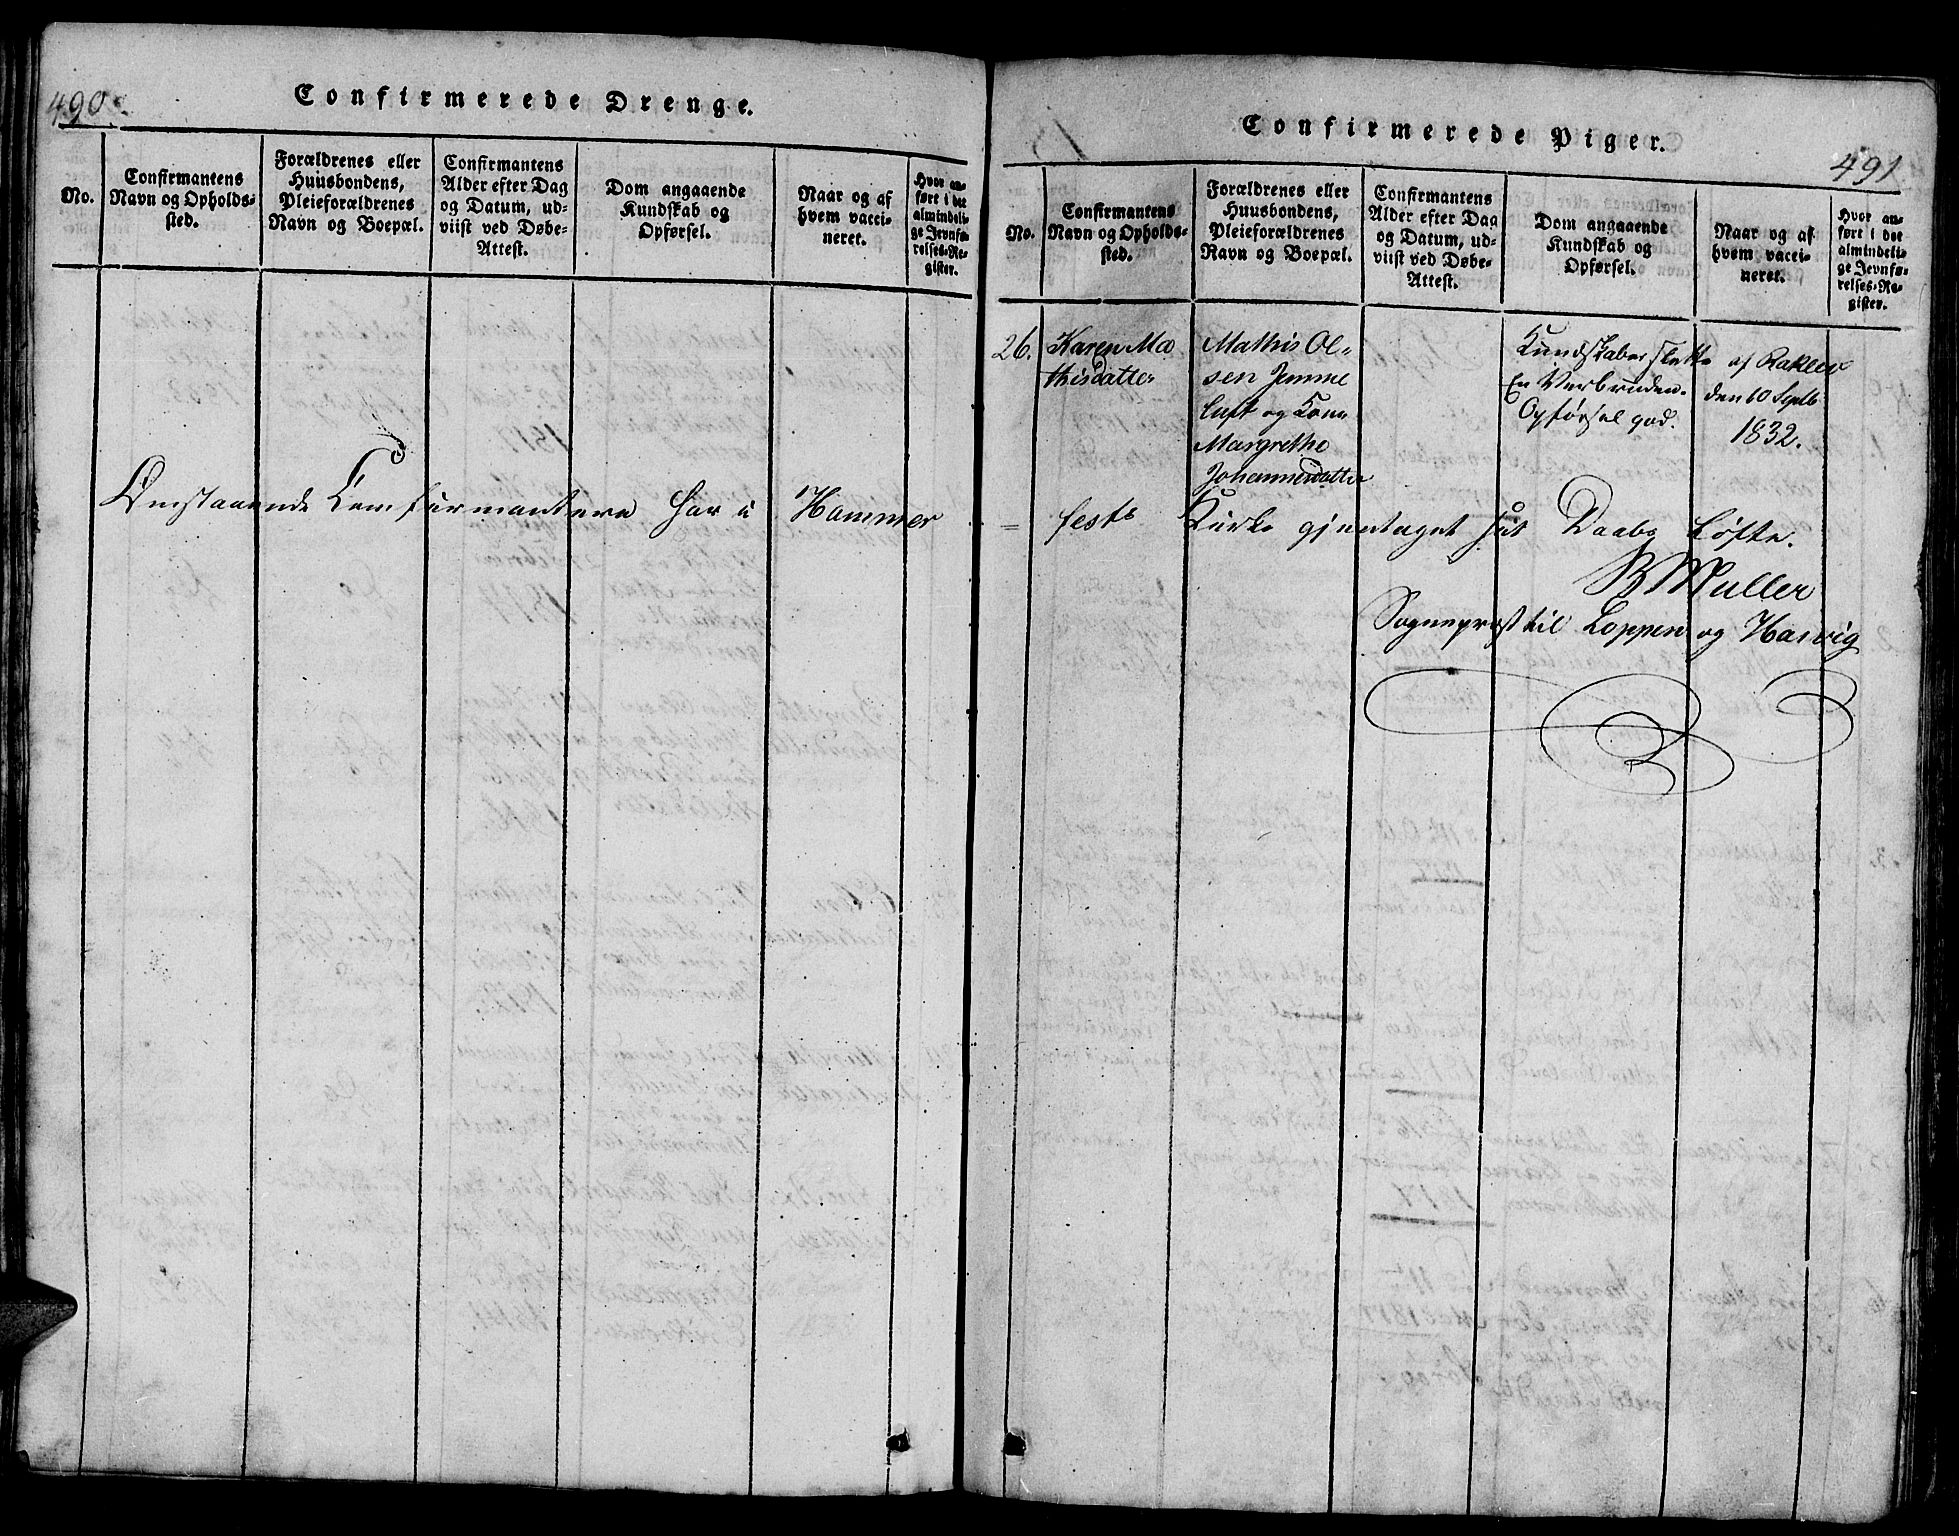 490.
Confirmerede Drenge.
No.
Confirmantens
Navn og Opholds-
sted.
Forældrenes eller
Huusbondens,
Pleieforældrenes
Navn og Boepæl.
Confirmantens
Alder efter Dag
og Datum, ud-
viist ved Døbe-
Attest.
Dom angaaende
Kundskab og
Opførsel.
Naar og af
hvem vacci-
neret.
Hvor an-
ført i det
almindeli-
ge Jevnfø-
relses-Re-
gister.
Omstaaende Confirmantere har i Hammer
Confirmerede Piger.
491
No.
Confirmantens
Navn og Opholds-
sted.
Forældrenes eller
Huusbondens,
Pleieforældrenes
Navn og Boepæl.
Confirmantens
Alder efter Dag
og Datum, ud-
viist ved Døbe-
Attest.
Dom angaaende
Kundskab og
Opførsel.
Naar og af
hvem vacci-
neret.
Hvor an-
ført i det
almindeli-
ge Jevnfø-
relses-Re-
gister.
26.
Karen Ma
thisdatter
Mathis Ol-
sen Jemme
luft og Kone
Margrethe
Johannesdatter
Kundskaber slette
Opførsel god.
af Raklev
den 10 Septb
1832.
= fests Kirke gjentaget sit Daabs Løfte.
Muller
Sognepræst til Loppen og Hasvig